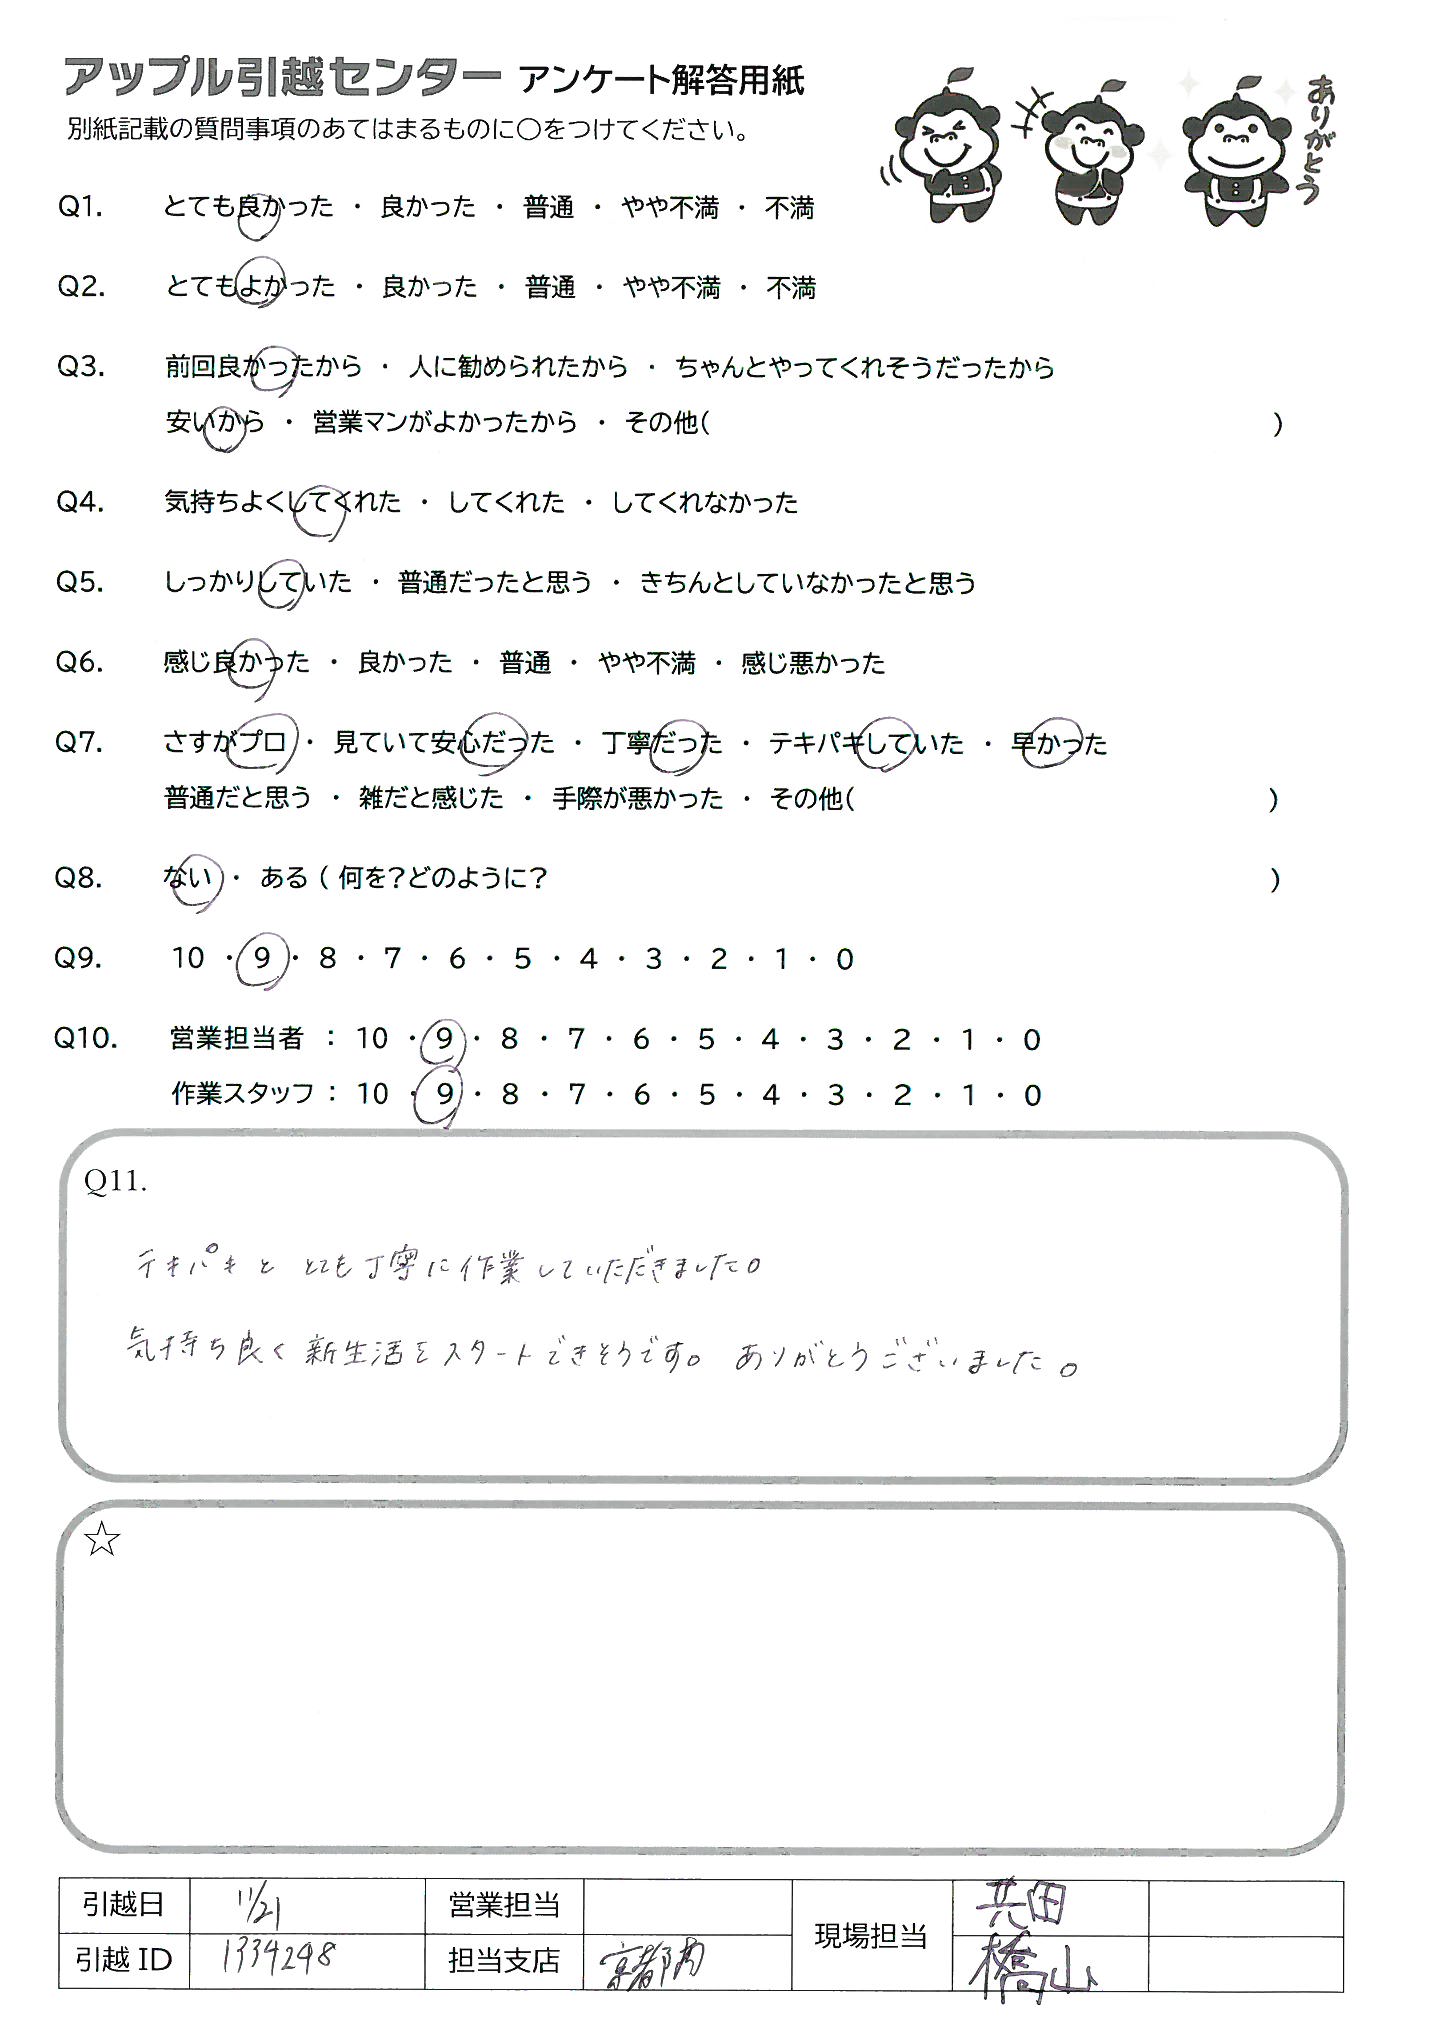 アップル引越センター アンケート解答用紙
別紙記載の質問事項のあてはまるものに○をつけてください。
ありがとう
Q1. とても良かった ・ 良かった ・ 普通 ・ やや不満 ・ 不満
Q2. とてもよかった ・ 良かった ・ 普通 ・ やや不満 ・ 不満
Q3. 前回良かったから ・ 人に勧められたから ・ ちゃんとやってくれそうだったから
安いから ・ 営業マンがよかったから ・ その他( )
Q4. 気持ちよくしてくれた ・ してくれた ・ してくれなかった
Q5. しっかりしていた ・ 普通だったと思う ・ きちんとしていなかったと思う
Q6. 感じ良かった ・ 良かった ・ 普通 ・ やや不満 ・ 感じ悪かった
Q7. さすがプロ ・ 見ていて安心だった ・ 丁寧だった ・ テキパキしていた ・ 早かった
普通だと思う ・ 雑だと感じた ・ 手際が悪かった ・ その他( )
Q8. ない ・ ある ( 何を?どのように? )
Q9. 10 ・ 9 ・ 8 ・ 7 ・ 6 ・ 5 ・ 4 ・ 3 ・ 2 ・ 1 ・ 0
Q10. 営業担当者 : 10 ・ 9 ・ 8 ・ 7 ・ 6 ・ 5 ・ 4 ・ 3 ・ 2 ・ 1 ・ 0
作業スタッフ : 10 ・ 9 ・ 8 ・ 7 ・ 6 ・ 5 ・ 4 ・ 3 ・ 2 ・ 1 ・ 0
Q11.
テキパキと とても丁寧に作業していただきました。
気持ち良く新生活をスタートできそうです。 ありがとうございました。
☆
引越日 11/21 営業担当 現場担当 共田
引越ID 1334298 担当支店 京都南 橋山